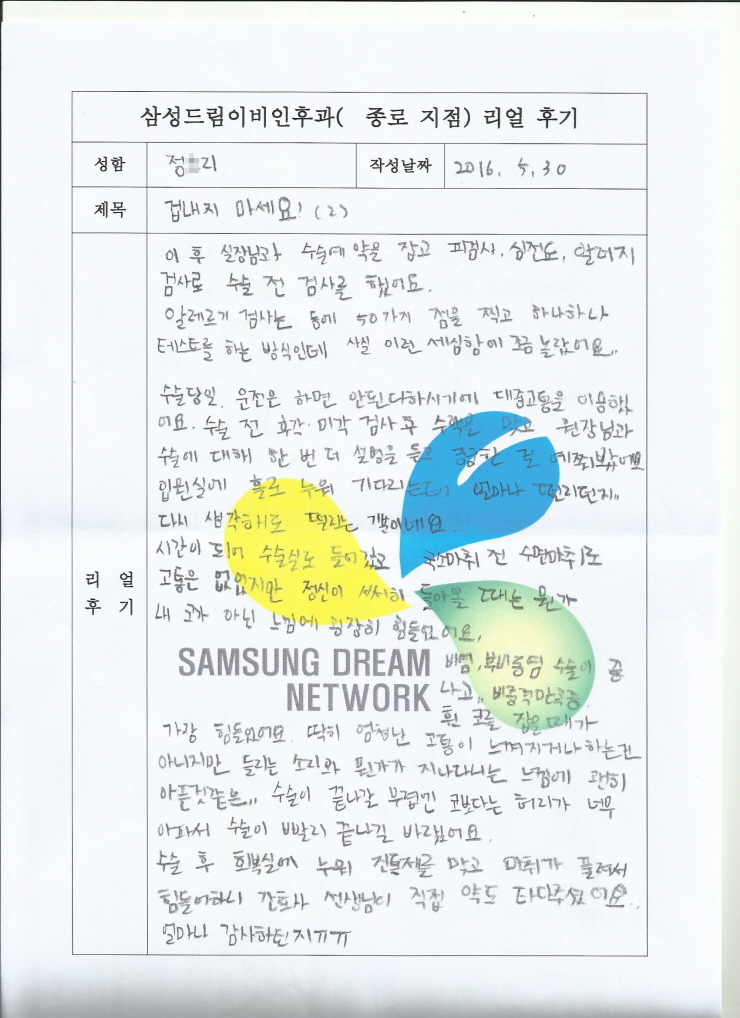 삼성드림이비인후과( 종로 지점) 리얼 후기
성함 정 리 작성날짜 2016. 5. 30
제목 겁내지 마세요! (2)
리 얼
후 기
이 후 실장님과 수술예약을 잡고 피검사, 심전도, 알러지
검사로 수술 전 검사를 했어요.
알레르기 검사는 등에 50가지 점을 찍고 하나하나
테스트를 하는 방식인데 사실 이런 세심함에 조금 놀랐어요..
수술당일. 운전은 하면 안된다하시기에 대중교통을 이용했
어요. 수술 전 후각·미각 검사 후 수액을 맞고 원장님과
수술에 대해 한 번 더 설명을 듣고 궁금한 걸 여쭤봤어요
입원실에 홀로 누워 기다리는데 얼마나 떨리던지..
다시 생각해도 떨리는 기분이네요.
시간이 되어 수술실로 들어갔고 국소마취 전 수면마취로
고통은 없었지만 정신이 서서히 돌아올 때는 뭔가
내 코가 아닌 느낌에 굉장히 힘들었어요.
비염, 부비동염 수술이 끝
나고.. 비중격만곡증
휜 코를 잡을때가
가장 힘들었어요. 딱히 엄청난 고통이 느껴지거나하는건
아니지만 들리는 소리와 뭔가가 지나다니는 느낌에 괜히
아픈것같은.. 수술이 끝나갈 무렵엔 코보다는 허리가 너무
아파서 수술이 빨리 끝나길 바랬어요.
수술 후 회복실에 누워 진통제를 맞고 마취가 풀려서
힘들어하니 간호사 선생님이 직접 약도 타다주셨어요..
얼마나 감사하던지ㅠㅠ
SAMSUNG DREAM
NETWORK